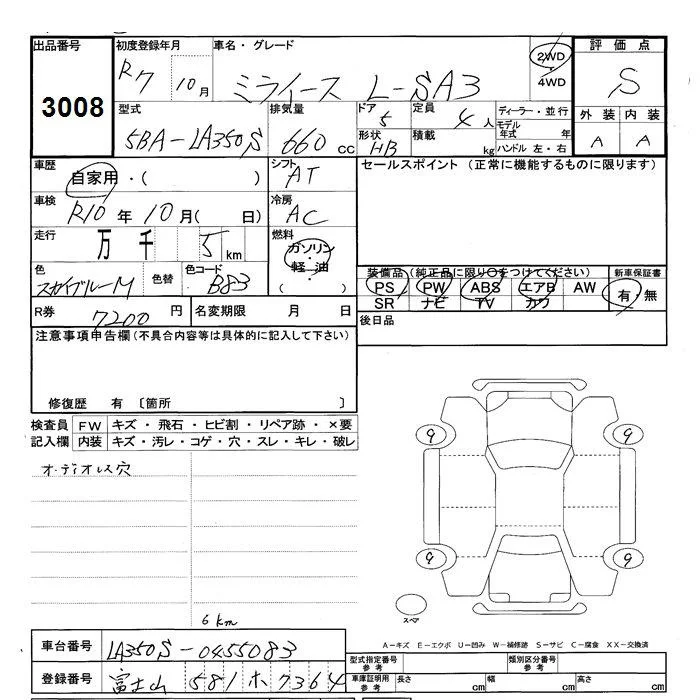 出品番号 初度登録年月 車名・グレード 評価点
3008 R7 10月 ミライース L-SA3 2WD・4WD S
型式 排気量 ドア 定員 ディーラー・並行 外装 内装
5BA-LA350S 660cc 5 4人 モデル年式 年 A A
形状 HB 積載 kg ハンドル 左・右
車歴 自家用・( ) シフト AT セールスポイント (正常に機能するものに限ります)
車検 R10年10月( 日) 冷房 AC
走行 万 千 5km 燃料 ガソリン・軽油 ( )
色 スカイブルーM 色替 色コード B83
装備品(純正品に限り○をつけてください) 新車保証書
PS PW ABS エアB AW 有・無
SR ナビ TV カワ
R券 7200円 名変期限 月 日 後日品
注意事項申告欄(不具合内容等は具体的に記入して下さい)
修復歴 有 〔箇所 〕
検査員 FW キズ・飛石・ヒビ割・リペア跡・×要
記入欄 内装 キズ・汚レ・コゲ・穴・スレ・キレ・破レ
オーディオレス穴
9 9
9 9
スペア
6km
A−キズ E−エクボ U−凹み W−補修跡 S−サビ C−腐食 XX−交換済
車台番号 LA350S-0455083
型式指定番号 参考 類別区分番号 参考
登録番号 富士山 581 ホ 7364
車庫証明用 参考 長さ cm 幅 cm 高さ cm